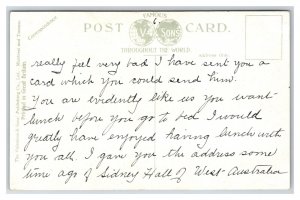 FAMOUS
POST CARD.
V & SONS
THROUGHOUT THE WORLD
Correspondence
Printed in Great Britain
really feel very bad I have sent you a
card which you could send him.
You are evidently like us you want
lunch before you go to bed I would
greatly have enjoyed having lunch with
you all. I gave you the address some
time ago of Sidney Hall of West-Australia